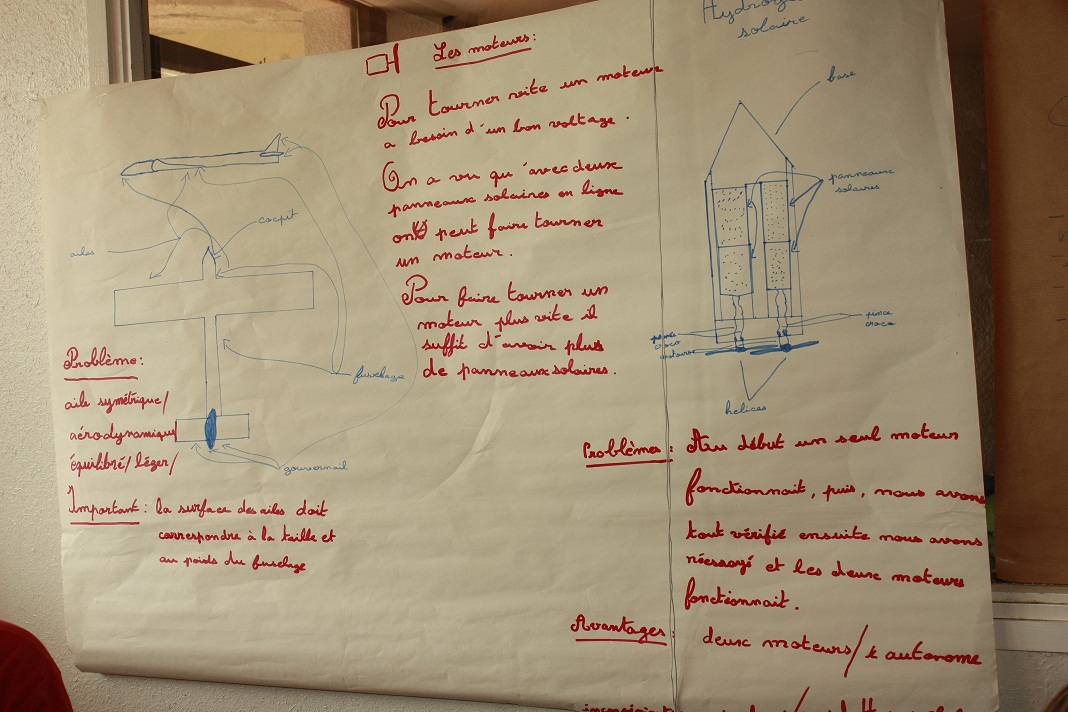 Les moteurs:
Pour tourner vite un moteur
a besoin d'un bon voltage.
On a vu qu'avec deux
panneaux solaires en ligne
on peut faire tourner
un moteur.
Pour faire tourner un
moteur plus vite il
suffit d'avoir plus
de panneaux solaires.
ailes
cocpit
fuselage
gouvernail
Problème:
aile symétrique/
aérodynamique
équilibré/léger/
Important: la surface des ailes doit
correspondre à la taille et
au poids du fuselage
solaire
base
panneaux
solaires
pince
croco
croco
helices
Problèmes: Au début un seul moteur
fonctionnait, puis, nous avons
tout vérifié ensuite nous avons
néssayé et les deux moteurs
fonctionnait.
Avantages: deux moteurs/ autonome